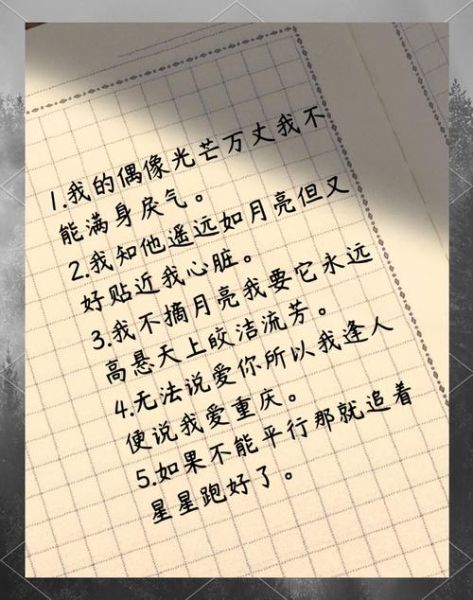 1.我的偶像光芒万丈我不
能满身戾气。
2.我知他遥远如月亮但又
好贴近我心脏。
3.我不摘月亮我要它永远
高悬天上皎洁流芳。
4.无法说爱你所以我逢人
便说我爱重庆。
5.如果不能平行那就追着
星星跑好了。